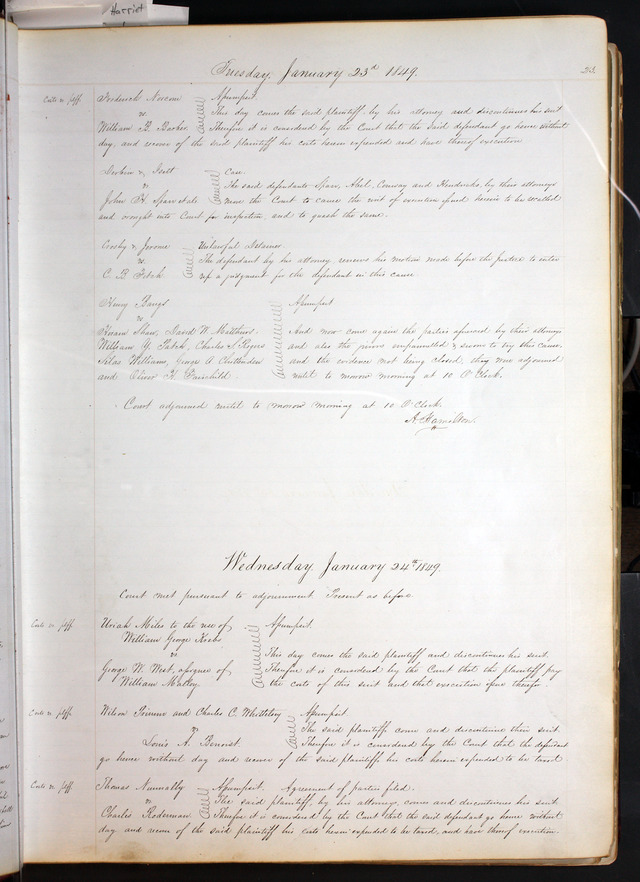 Harriet
Tuesday, January 23d 1849.
Costs vs. plff.
Assumpsit.
vs.
This day comes the said plaintiff, by his attorney and discontinues his suit
William B. Barker
Therefore it is considered by the Court that the said defendant go hence without
day, and recover of the said plaintiff his costs herein expended and have thereof execution
Case.
vs.
The said defendants Sparr, Abel, Conway and Hendricks, by their attorneys
John H. Sparr et als
move the Court to cause the writ of execution issued herein to be recalled
and brought into Court for inspection and to quash the same.
Crosby & Jerome
Unlawful Detainer
vs.
The defendant by his attorney renews his motion made before the justice to enter
C. B. Fetch
up a judgment for the defendant in this cause
Henry Bangs
Assumpsit
vs.
Hiram Shaw, David W. Matthews.
And now come again the parties aforesaid by their attorneys
William Y. Patch, Charles S. Rogers
and also the jurors empannelled & sworn to try this cause.
Silas Williams, George A. Chittenden
and the evidence not being closed, they were adjourned
and Oliver H. Fairchild.
until to morrow morning at 10 O'Clock.
Court adjourned until to morrow morning at 10 O'Clock.
A. Hamilton.
Wednesday January 24th 1849.
Court met pursuant to adjournment Present as before
Costs vs. plff.
Uriah Miles to the use of
Assumpsit.
William George Krebs
vs
This day comes the said plaintiff and discontinues his suit.
George W. West, assignee of
Therefore it is considered by the Court that the plaintiff pay
William Malloy
the costs of this suit and that execution issue therefor.
Costs vs. plffs.
Wilson Primm and Charles C. Whittlesey
Assumpsit.
vs
The said plaintiffs come and discontinue their suit.
Louis A. Benoist.
Therefore it is considered by the Court that the defendant
go hence without day and recover of the said plaintiffs his costs herein expended to be taxed
Costs vs. plff.
Thomas Nunnally
Assumpsit. Agreement of parties filed.
vs
The said plaintiff, by his attorney, comes and discontinues his suit.
Charles Roderman
Therefore it is considered by the Court that the said defendant go hence without
day and recover of the said plaintiff his costs herein expended to be taxed, and have thereof execution.